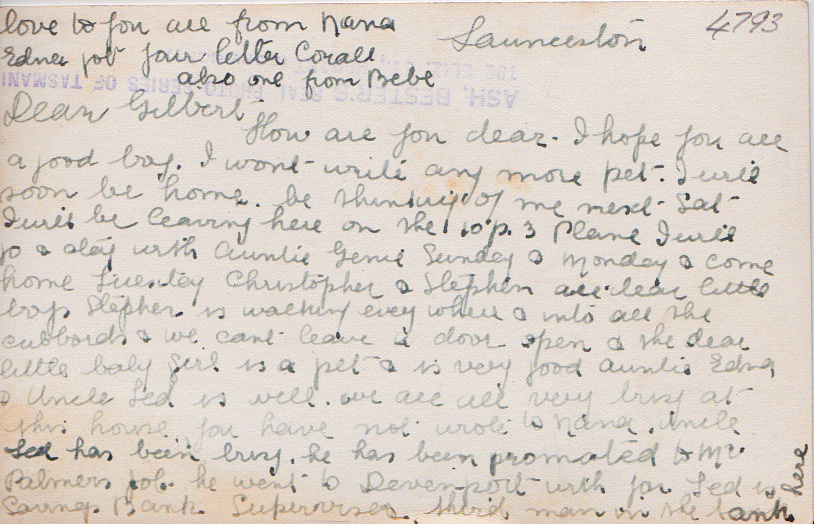 love to you all from Nana
Edna got your letter Corall
also one from Bebe
4793
Launceston
ASH, BESTER'S REAL PHOTO SERIES OF TASMANI
Dear Gilbert
How are you dear. I hope you are
a good boy. I wont write any more pet. I will
soon be home. be thinking of me next Sat
I will be leaving here on the 10 p. 3 Plane I will
go & stay with Auntie Genie Sunday & Monday & come
home Tuesday Christopher & Stephen are dear little
boys Stephen is walking every where & into all the
cubbords & we cant leave a door open & the dear
little baby girl is a pet & is very good Auntie Edna
& Uncle Led is well. we are all very busy at
this house you have not wrote to Nana. Uncle
Led has been busy. he has been promoted to Mr
Palmers job. he went to Devenport with for Led is
Savings Bank Supervisor, third man in the bank
here